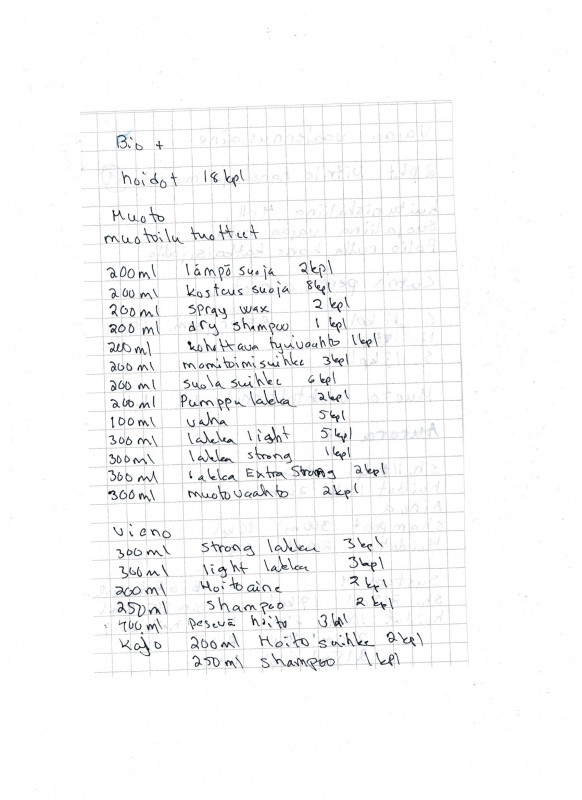 Bio +
hoidot 18 kpl
Muoto
muotoilu tuottut
200ml lämpö suoja 2kpl
200ml kosteus suoja 8kpl
200ml spray wax 2 kpl
200ml dry shampoo 1 kpl
200ml kohottava tyvivaahto 1kpl
200ml monitoimisuihke 3kpl
200ml suola suihke 6 kpl
200ml Pumppu lakka 2kpl
100ml vaha 5kpl
300ml lakka light 5 kpl
300ml lakka strong 1kpl
300ml lakka Extra Strong 2kpl
300ml muotovaahto 2kpl
Vieno
300ml strong lakka 3 kpl
300ml light lakka 3kpl
200ml Hoitoaine 2 kpl
250ml shampoo 2 kpl
400ml pesevä hoito 3kpl
Kajo 200ml Hoito suihke 2kpl
250ml shampoo 1kpl